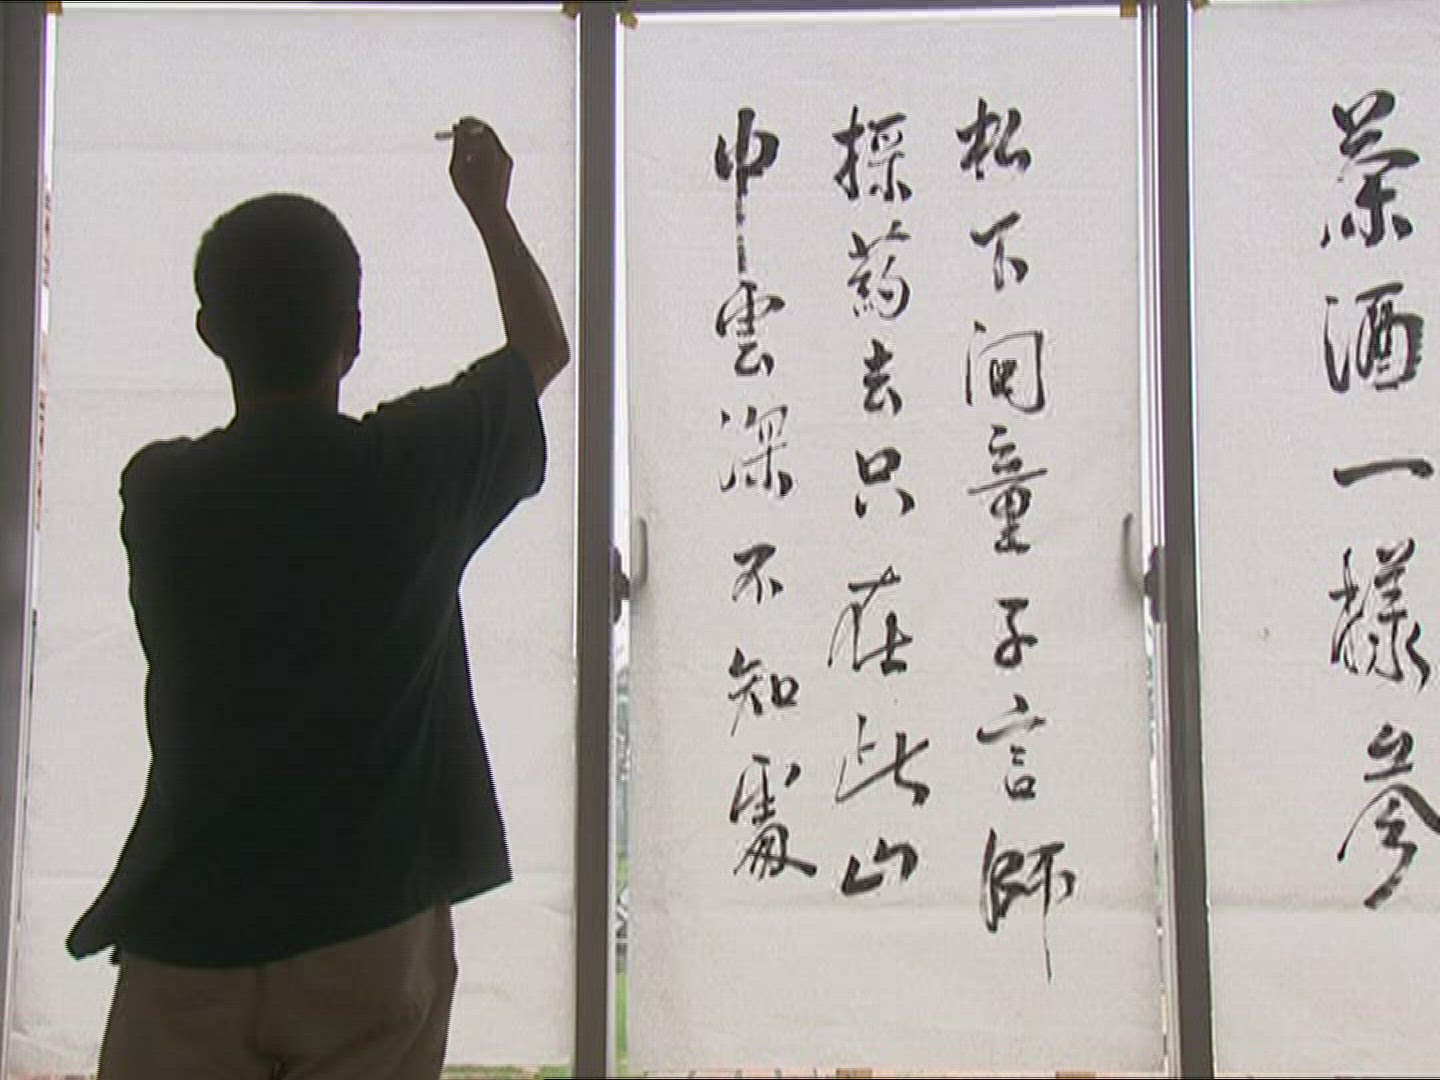 茶酒一樣參
松下问童子言師
採药去只在此山
中雲深不知處